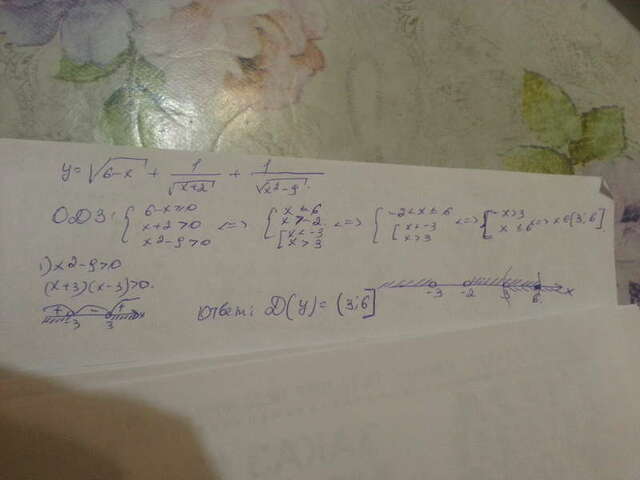 y = √(6-x) + 1/√(x+2) + 1/√(x²-9).
ОДЗ: { 6-x≥0 x+2>0 x²-9>0 <=> { x≤6 x>-2 [ x<-3 x>3 <=> { -2<x≤6 [ x<-3 x>3 <=> { x>3 x≤6 <=> x∈(3;6]
1) x²-9>0
(x+3)(x-3)>0.
+ -3 - 3 + x
Ответ: D(y) = (3;6]
-3 -2 3 6 x
ЗАКАЗ